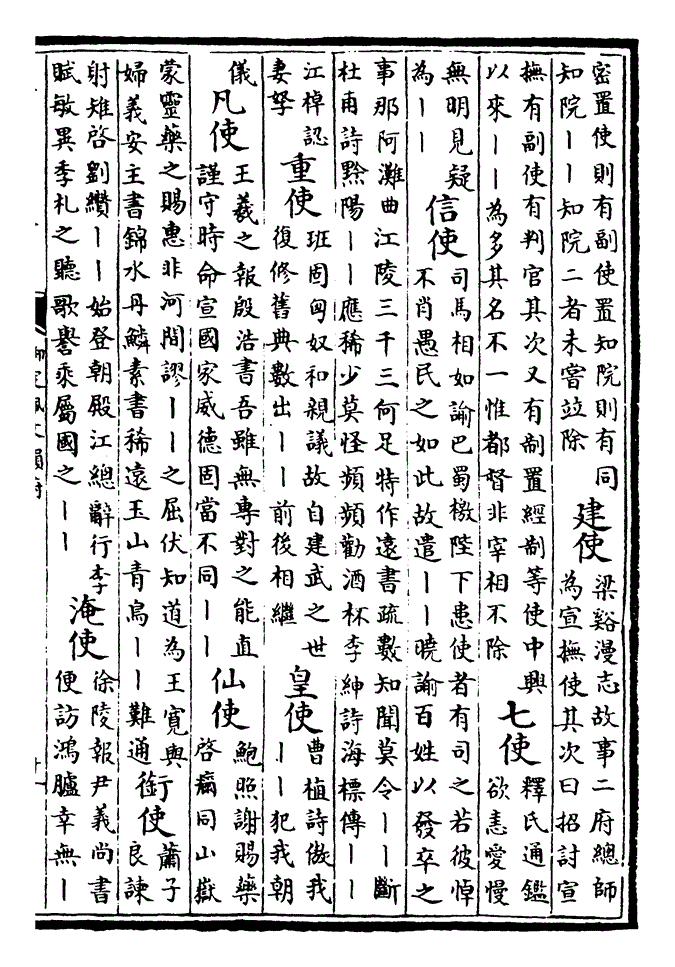 密置使則有副使置知院則有同
知院丨丨知院二者未嘗竝除
建使
梁谿漫志故事二府總師
為宣撫使其次曰招討宣
撫有副使有判官其次又有制置經制等使中興
以來丨丨為多其名不一惟都督非宰相不除
七使
釋氏通鑑
欲恚愛慢
無明見疑
為丨丨
信使
司馬相如諭巴蜀檄陛下患使者有司之若彼悼
不肖愚民之如此故遣丨丨曉諭百姓以發卒之
事那阿灘曲江陵三千三何足特作遠書疏數知聞莫令丨丨斷
杜甫詩黔陽丨丨應稀少莫怪頻頻勸酒杯李紳詩海標傳丨丨
江棹認
妻孥
重使
班固匈奴和親議故自建武之世
復修舊典數出丨丨前後相繼
皇使
曹植詩傲我
丨丨犯我朝
儀
凡使
王羲之報殷浩書吾雖無專對之能直
謹守時命宣國家威德固當不同丨丨
仙使
鮑照謝賜藥
啓痾同山嶽
蒙靈藥之賜惠非河間謬丨丨之屈伏知道為王寬與
婦義安主書錦水丹鱗素書稀遠玉山青鳥丨丨難通
銜使
蕭子
良諫
射雉啓劉纘丨丨始登朝殿江總辭行李
賦敏異季札之聽歌譽乘屬國之丨丨
淹使
徐陵報尹義尚書
便訪鴻臚幸無丨